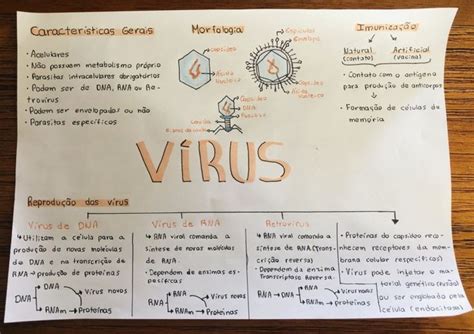 Características Gerais
• Acelulares
• Não possuem metabolismo próprio
• Parasitas intracelulares obrigatórios
• Podem ser de DNA, RNA ou Re-
trovírus
• Podem ser envelopados ou não
• Parasitas específicos
Morfologia
capsídeo
Ácido
nucleico
Capsídeo
Envelope
Capsídeo
Ácido
nucleico
Capsídeo
DNA
Cauda
Imunização
Natural
(contato)
Artificial
(vacina)
• Contato com o antígeno
para produção de anticorpos
• Formação de células de
memória
VÍRUS
Reprodução dos vírus
Vírus de DNA
↳ Utilizam a célula para a
produção de novas moléculas
de DNA e na transcrição de
RNA → produção de proteínas
DNA
DNA
Vírus novos
DNA
RNAm → Proteínas
Vírus de RNA
↳ RNA viral comanda a
síntese de novas moléculas
de RNA.
• Dependem de enzimas es-
pecíficas
RNA
RNA
Vírus novos
RNA
RNAm → Proteínas
Retrovírus
↳ RNA viral comanda a
síntese de RNA (trans-
crição reversa)
• Dependem da enzima
Transcriptase Reversa
RNA
DNA
Vírus novos
RNAm → Proteínas
• Proteínas do capsídeo reco-
nhecem receptores da mem-
brana celular (específicos)
• Vírus pode injetar o ma-
terial genético
ou ser englobado pela
célula (endocitose)